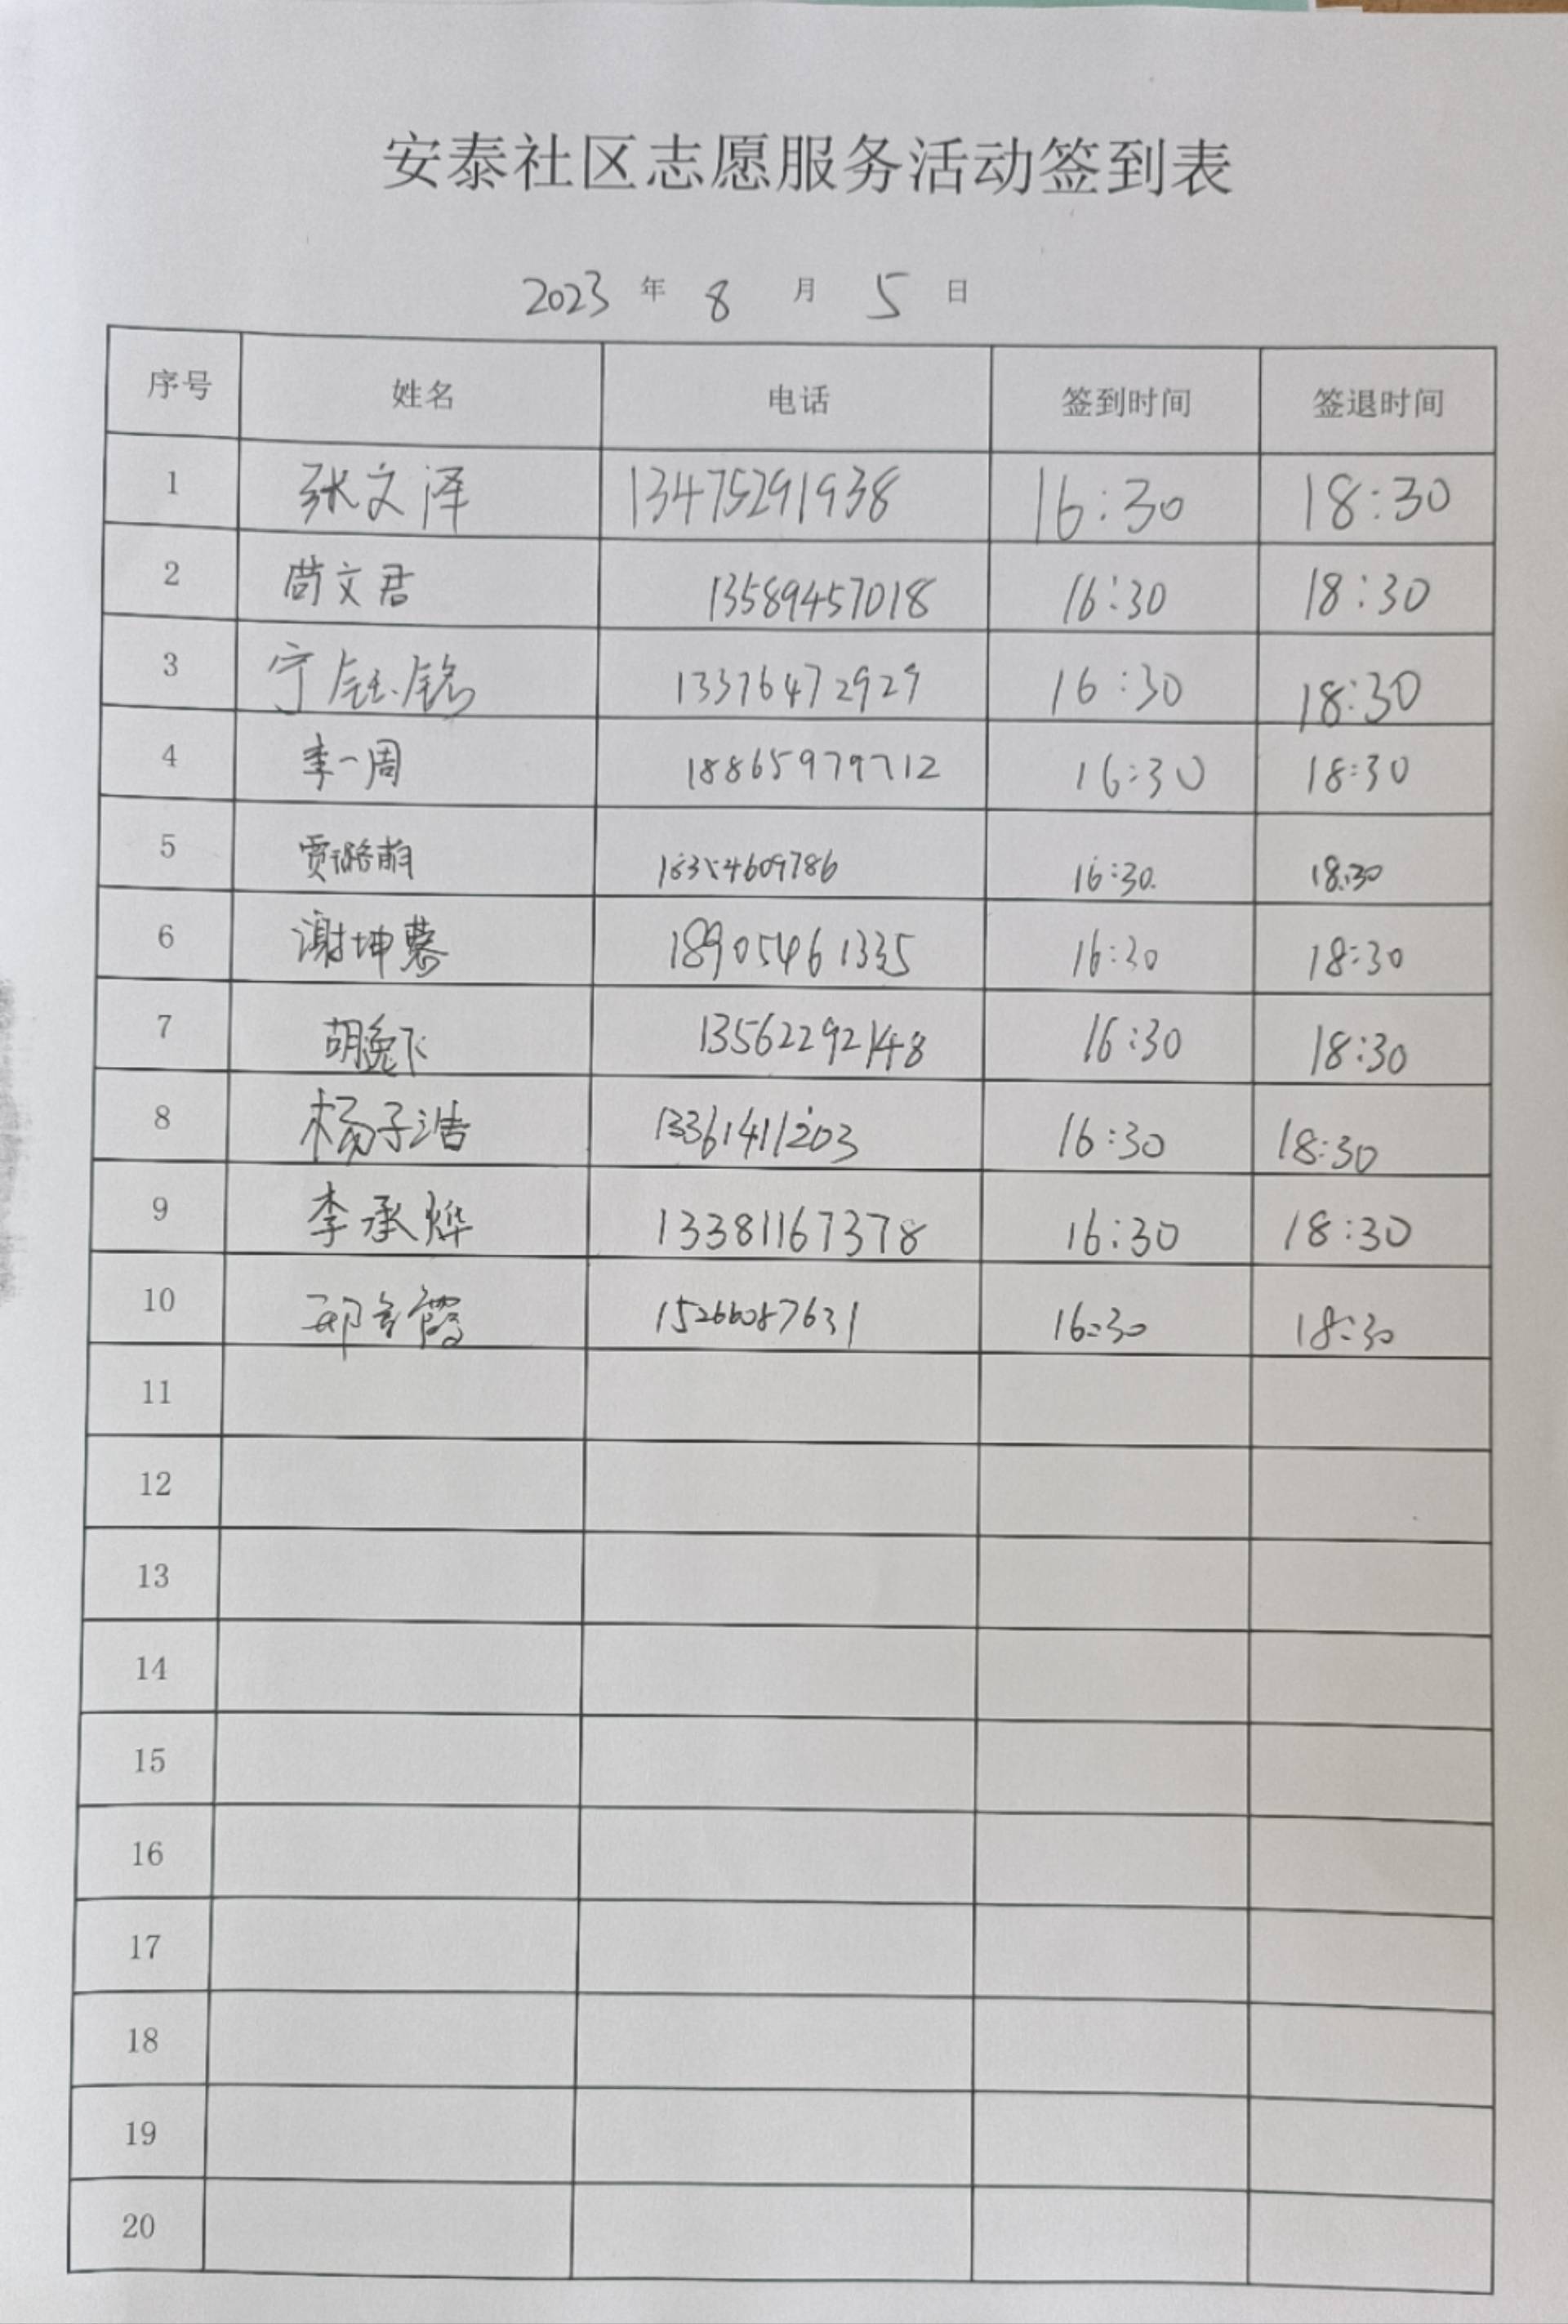 安泰社区志愿服务活动签到表
2023 年 8 月 5 日
序号 姓名 电话 签到时间 签退时间
1 张文泽 13475291938 16:30 18:30
2 尚文君 13589457018 16:30 18:30
3 宁钰铭 13376472929 16:30 18:30
4 李一周 18865979712 16:30 18:30
5 贾璐萌 16:30 18:30
6 谢坤慕 18905461335 16:30 18:30
7 胡逸飞 13562292148 16:30 18:30
8 杨子浩 13361411203 16:30 18:30
9 李承烨 13381167378 16:30 18:30
10 15266087631 16:30 18:30
11
12
13
14
15
16
17
18
19
20